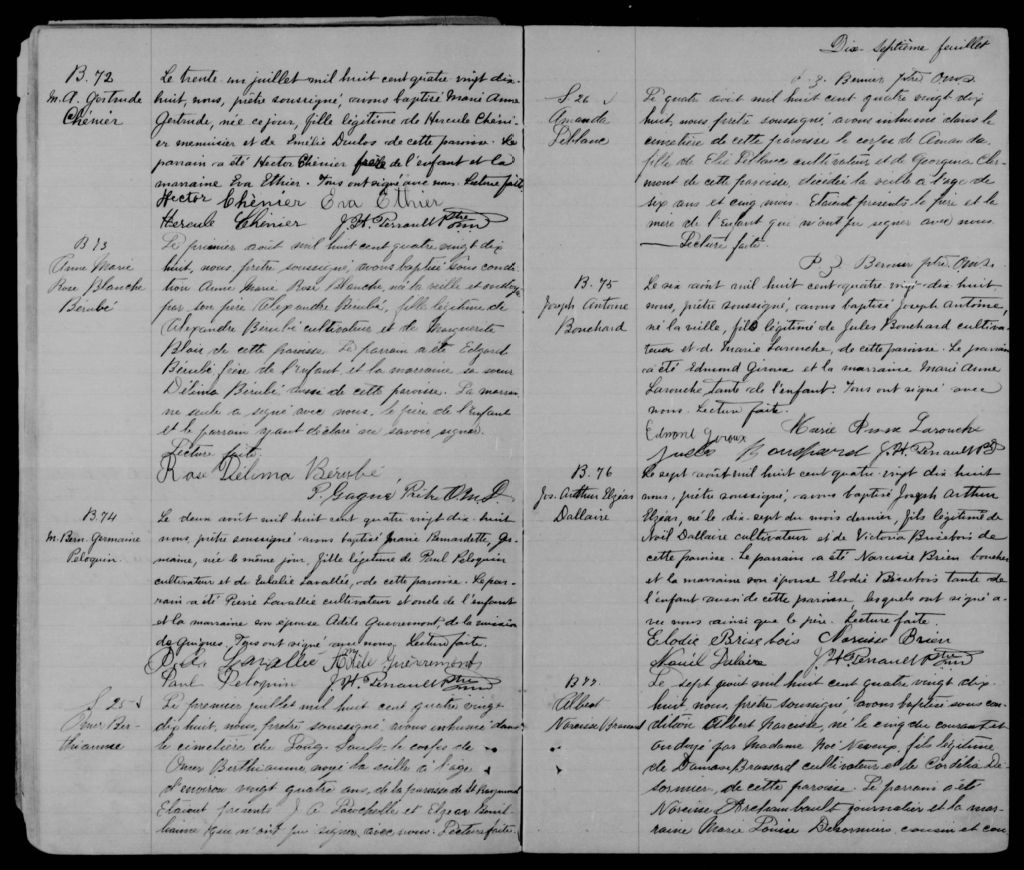 B. 72
M. A. Gertrude
Chénier
Le trente un juillet mil huit cent quatre vingt dix-
huit, nous, prêtre soussigné, avons baptisé Marie Anne
Gertrude, née ce jour, fille légitime de Hercule Chéni-
er menuisier et de Emélie Duclos de cette paroisse. Le
parrain a été Hector Chénier frère de l'enfant et la
marraine Eva Ethier. Tous ont signé avec nous. Lecture faite.
Hector Chénier Eva Ethier
Hercule Chénier J. H. Perrault Ptre
B 73
Anne Marie
Rose Blanche
Bérubé
Le premier août mil huit cent quatre vingt dix
huit, nous, prêtre soussigné, avons baptisé sous condi-
tion Anne Marie Rose Blanche, née la veille et ondoyée
par son père Alexandre Bérubé, fille légitime de
Alexandre Bérubé cultivateur et de Marguerite
Blais de cette paroisse. Le parrain a été Edgard
Bérubé frère de l'enfant et la marraine sa soeur
Délima Bérubé aussi de cette paroisse. La marrai-
ne seule a signé avec nous, le père de l'enfant
et le parrain ayant déclaré ne savoir signer.
Lecture faite.
Rose Délima Bérubé
P. Gagné Prêtre O.M.I.
B. 74
M. Bern. Germaine
Péloquin
Le deux août mil huit cent quatre vingt dix-huit
nous, prêtre soussigné avons baptisé Marie Bernardette, Ger-
maine, née le même jour, fille légitime de Paul Péloquin
cultivateur et de Eulalie Lavallée, de cette paroisse. Le par-
rain a été Pierre Lavallée cultivateur et oncle de l'enfant
et la marraine son épouse Adèle Guévremont, de la mission
de Guigues. Tous ont signé avec nous. Lecture faite.
Lavallée Adèle Guévremont
Paul Péloquin J. H. Perrault Ptre
S. 25
Omer Ber-
thiaume
Le premier juillet mil huit cent quatre vingt
dix huit, nous, prêtre soussigné, avons inhumé dans
le cimetière du Long-Sault le corps de
Omer Berthiaume noyé la veille à l'age
d'environ vingt quatre ans, de la paroisse de St Raymond
Etaient présents J. A. Larochelle et Elzéar
qui n'ont pu signer avec nous. Lecture faite.
Dix-septième feuillet
P. Z. Bernier ptre O.M.I.
S 26
Amanda
Leblanc
Le quatre août mil huit cent quatre vingt dix
huit, nous prêtre soussigné, avons inhumé dans le
cimetière de cette paroisse le corps de Amanda
fille de Elie Leblanc cultivateur et de Georgina Cler-
mont de cette paroisse, décédée la veille à l'age de
six ans et cinq mois. Etaient présents le père et la
mère de l'enfant qui n'ont pu signer avec nous
Lecture faite.
P. Z. Bernier ptre. O.M.I.
B. 75
Joseph Antoine
Bouchard
Le six août mil huit cent quatre vingt dix huit
nous, prêtre soussigné, avons baptisé Joseph Antoine,
né la veille, fils légitime de Jules Bouchard cultiva-
teur et de Marie Larouche, de cette paroisse. Le parrain
a été Edmond Giroux et la marraine Marie Anne
Larouche tante de l'enfant. Tous ont signé avec
nous. Lecture faite.
Edmond Giroux Marie Anna Larouche
Jules Bouchard J. H. Perrault
B. 76
Jos. Arthur Elzéar
Dallaire
Le sept août mil huit cent quatre vingt dix huit
nous, prêtre soussigné, avons baptisé Joseph Arthur
Elzéar, né le dix-sept du mois dernier, fils légitime de
Noël Dallaire cultivateur et de Victoria Brisebois de
cette paroisse. Le parrain a été Narcisse Brien boucher
et la marraine son épouse Elodie Brisebois tante de
l'enfant aussi de cette paroisse, lesquels ont signé a-
vec nous ainsi que le père. Lecture faite.
Elodie Brisebois Narcisse Brien
Dalaire J. H. Perrault Ptre
B. 77
Albert
Narcisse Brassard
Le sept août mil huit cent quatre vingt dix-
huit, nous, prêtre soussigné, avons baptisé sous con-
dition Albert Narcisse, né le cinq du courant et
ondoyé par Madame Noé Neveux, fils légitime
de Damase Brassard cultivateur et de Cordélia Dé-
sormier, de cette paroisse. Le parrain a été
Narcisse Archambault journalier et la mar-
raine Marie Louise Desormiers, cousin et cou